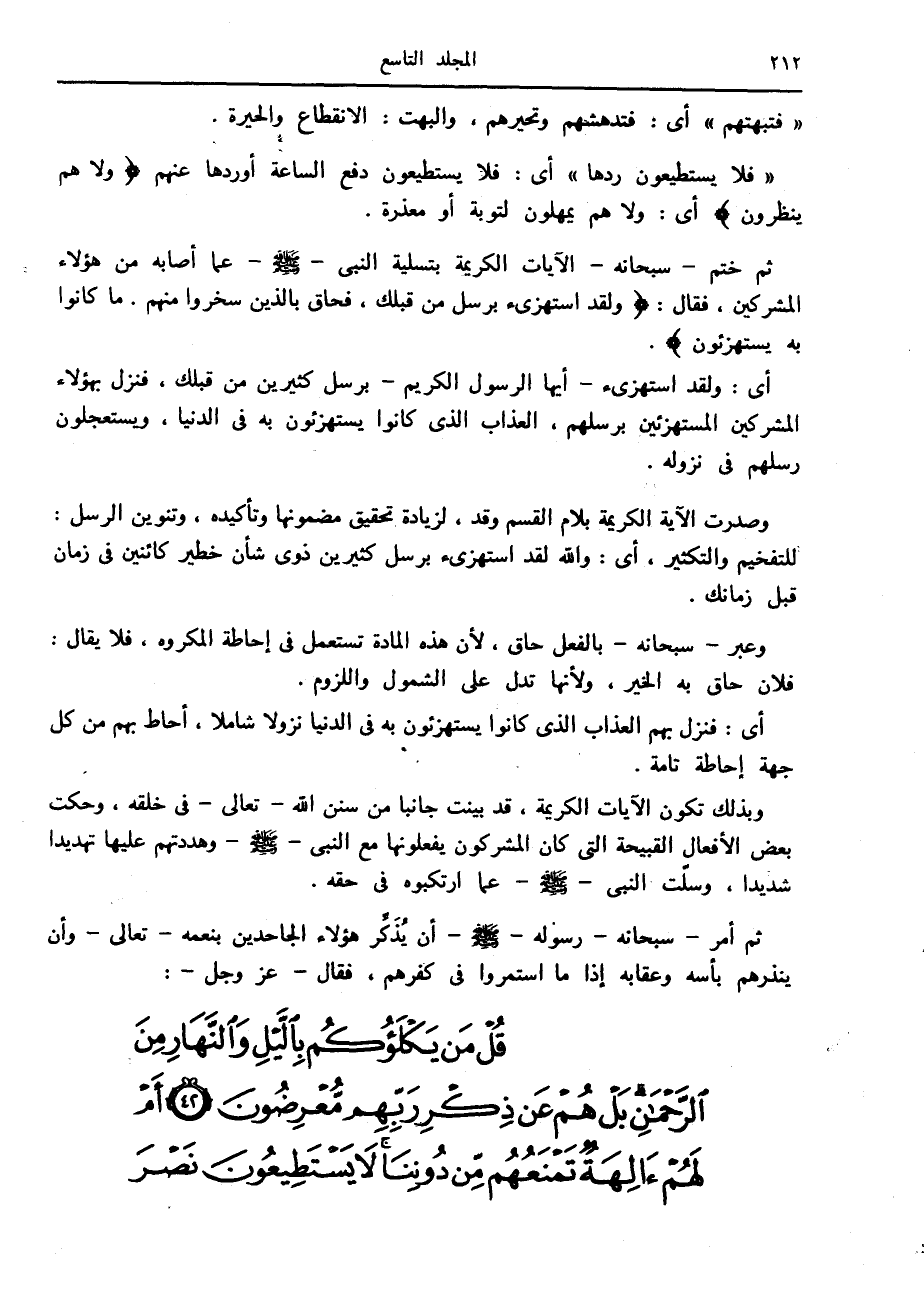 ٢١٢ المجلد التاسع
« فتبهتهم » أى : فتدهشهم وتحيرهم ، والبهت : الانقطاع والحيرة .
« فلا يستطيعون ردها » أى : فلا يستطيعون دفع الساعة أوردها عنهم ﴿ ولا هم
ينظرون ﴾ أى : ولا هم يمهلون لتوبة أو معذرة .
ثم ختم – سبحانه – الآيات الكريمة بتسلية النبى – ﷺ – عما أصابه من هؤلاء
المشركين ، فقال : ﴿ ولقد استهزىء برسل من قبلك ، فحاق بالذين سخروا منهم . ما كانوا
به يستهزئون ﴾ .
أى : ولقد استهزىء – أيها الرسول الكريم – برسل كثيرين من قبلك ، فنزل بهؤلاء
المشركين المستهزئين برسلهم ، العذاب الذى كانوا يستهزئون به فى الدنيا ، ويستعجلون
رسلهم فى نزوله .
وصدرت الآية الكريمة بلام القسم وقد ، لزيادة تحقيق مضمونها وتأكيده ، وتنوين الرسل :
للتفخيم والتكثير ، أى : والله لقد استهزىء برسل كثيرين ذوى شأن خطير كائنين فى زمان
قبل زمانك .
وعبر – سبحانه – بالفعل حاق ، لأن هذه المادة تستعمل فى إحاطة المكروه ، فلا يقال :
فلان حاق به الخير ، ولأنها تدل على الشمول واللزوم .
أى : فنزل بهم العذاب الذى كانوا يستهزئون به فى الدنيا نزولا شاملا ، أحاط بهم من كل
جهة إحاطة تامة .
وبذلك تكون الآيات الكريمة ، قد بينت جانبا من سنن الله – تعالى – فى خلقه ، وحكت
بعض الأفعال القبيحة التى كان المشركون يفعلونها مع النبى – ﷺ – وهددتهم عليها تهديدا
شديدا ، وسلّت النبى – ﷺ – عما ارتكبوه فى حقه .
ثم أمر – سبحانه – رسوله – ﷺ – أن يُذَكِّر هؤلاء الجاحدين بنعمه – تعالى – وأن
ينذرهم بأسه وعقابه إذا ما استمروا فى كفرهم ، فقال – عز وجل – :
قُلْ مَن يَكْلَؤُكُم بِٱلَّيْلِ وَٱلنَّهَارِ مِنَ
ٱلرَّحْمَٰنِۗ بَلْ هُمْ عَن ذِكْرِ رَبِّهِم مُّعْرِضُونَ ۝٤٢ أَمْ
لَهُمْ ءَالِهَةٌ تَمْنَعُهُم مِّن دُونِنَاۚ لَا يَسْتَطِيعُونَ نَصْرَ